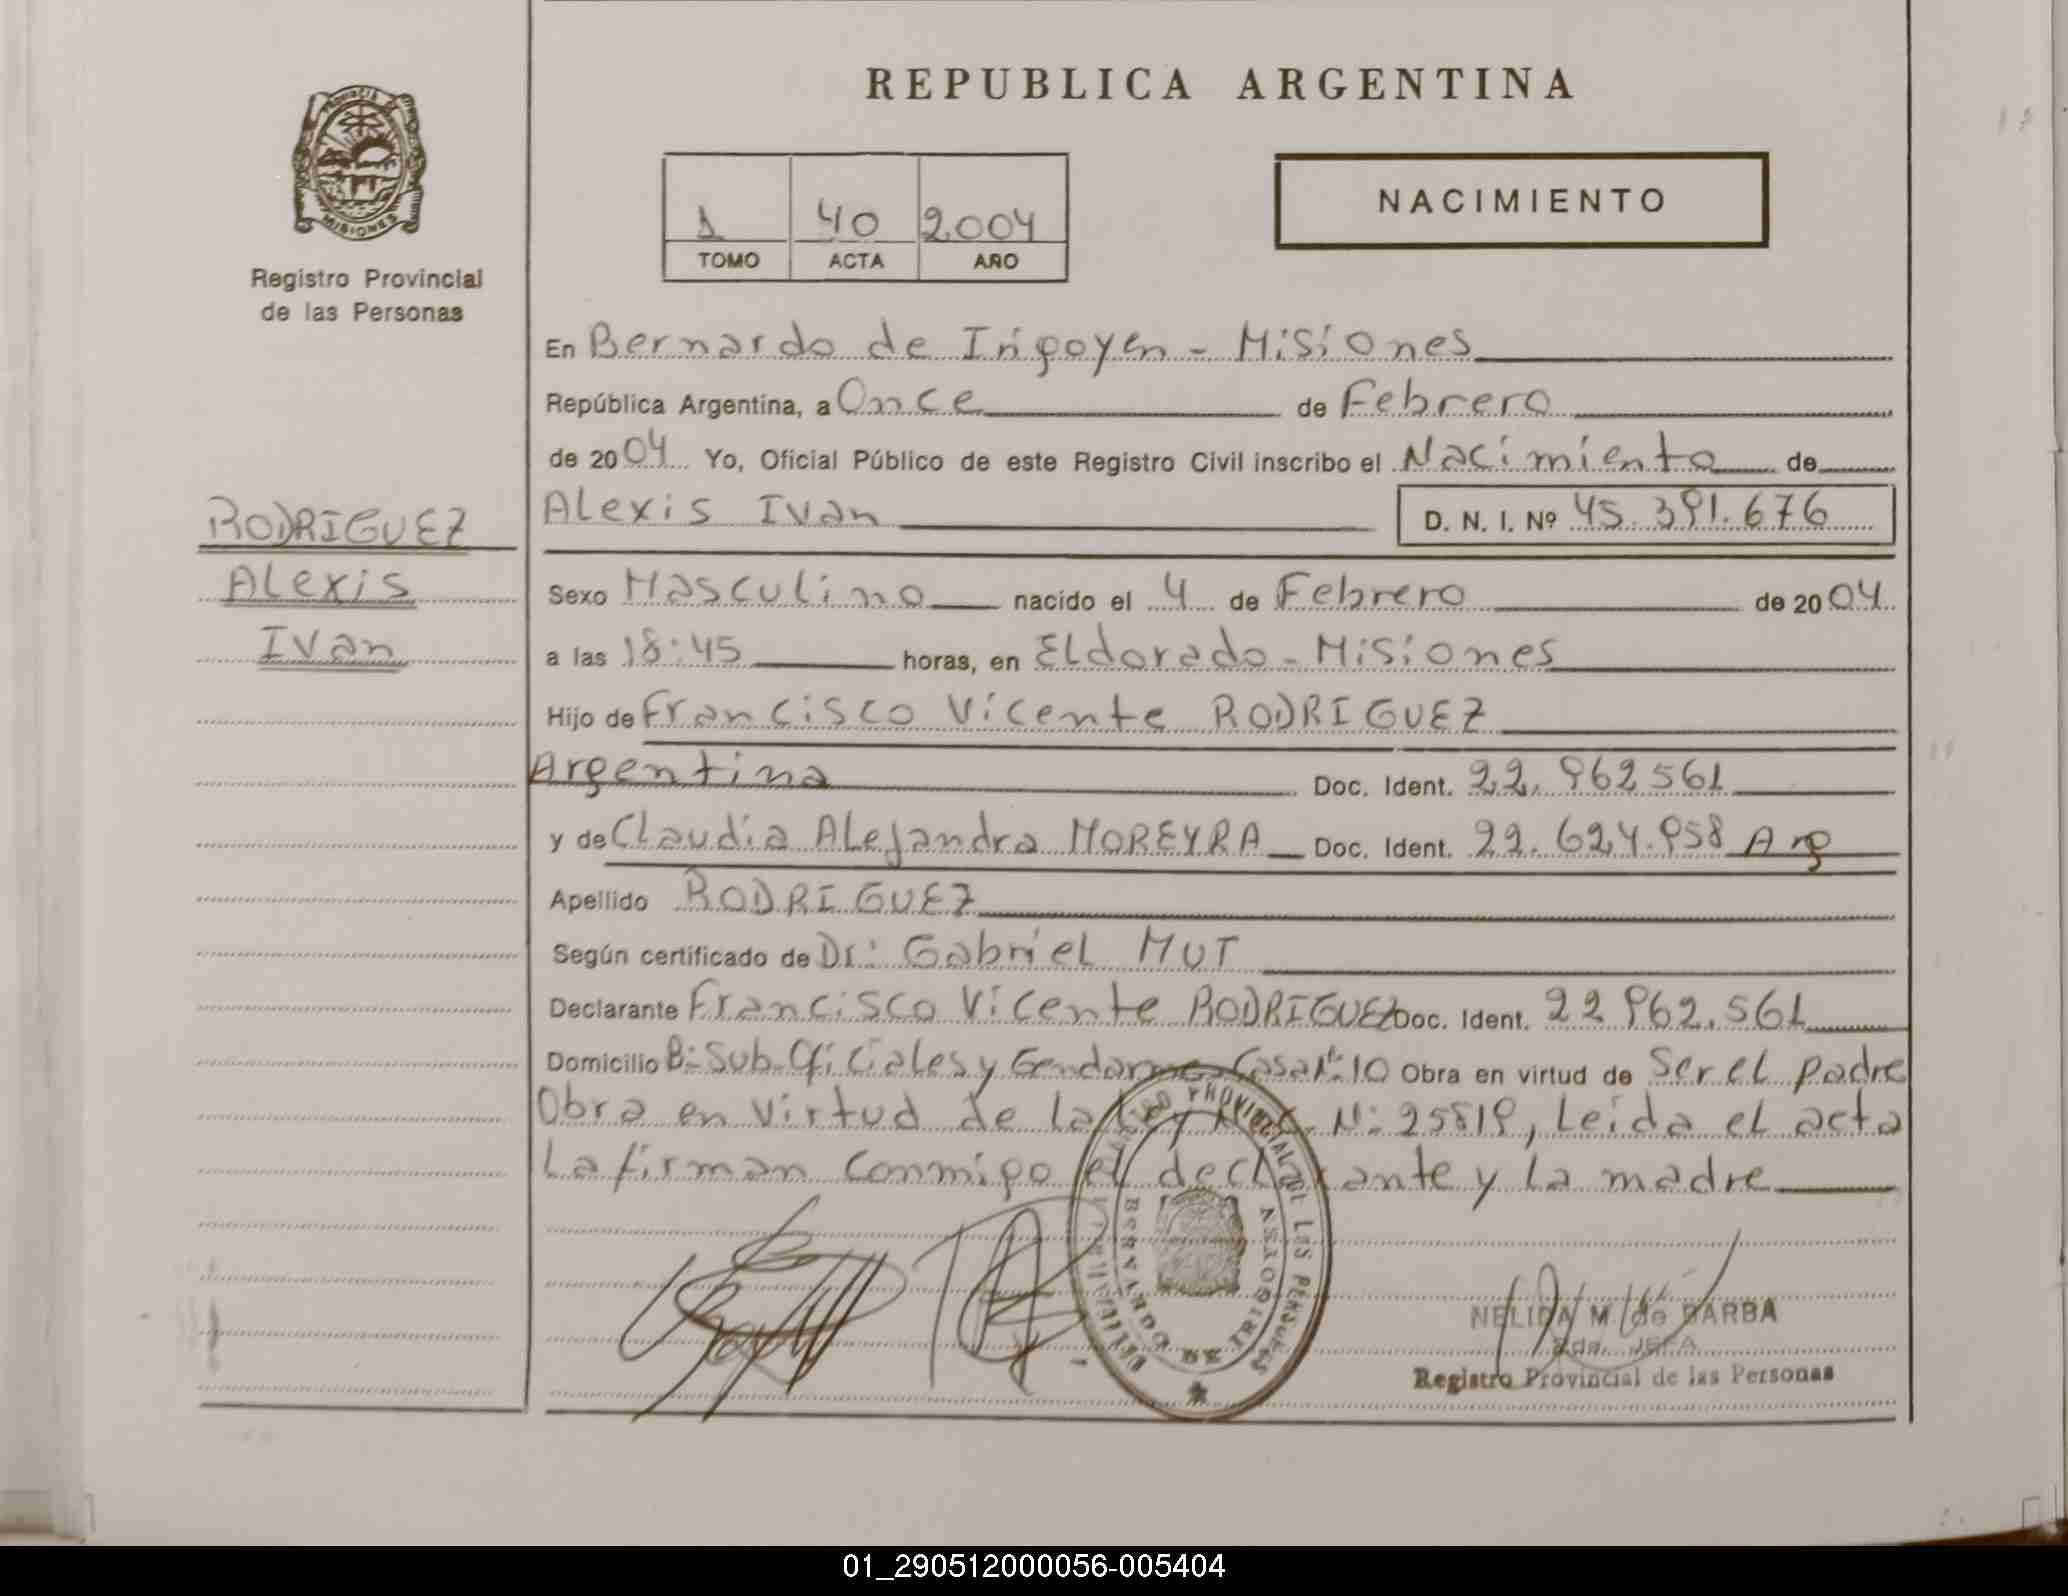 REPUBLICA ARGENTINA
PROVINCIA DE
MISIONES
Registro Provincial
de las Personas
1 40 2.004
TOMO ACTA AÑO
NACIMIENTO
En Bernardo de Irigoyen - Misiones
República Argentina, a Once de Febrero
de 2004 Yo, Oficial Público de este Registro Civil inscribo el Nacimiento de
Alexis Ivan D. N. I. Nº 45.391.676
RODRIGUEZ
Alexis
Ivan
Sexo Masculino nacido el 4 de Febrero de 2004
a las 18:45 horas, en Eldorado - Misiones
Hijo de Francisco Vicente RODRIGUEZ
Argentina Doc. Ident. 22.962561
y de Claudia Alejandra MOREYRA Doc. Ident. 22.624.958 Arg
Apellido RODRIGUEZ
Según certificado de Dr: Gabriel MUT
Declarante Francisco Vicente RODRIGUEZ Doc. Ident. 22962.561
Domicilio Bº Sub-Oficiales y Casa Nº 10 Obra en virtud de Ser el padre
Obra en virtud de la Ley Nº 25819, Leida el acta
La firman conmigo el declarante y la madre
REGISTRO PROVINCIAL DE LAS PERSONAS
BERNARDO DE IRIGOYEN
NELIDA M. de BARBA
JEFA
Registro Provincial de las Personas
01_290512000056-005404